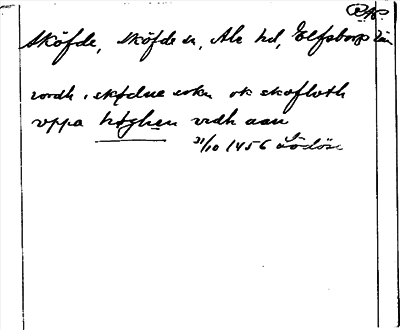 RAP
Sköfde, Sköfde sn, Ale hd, Elfsborgs län
iordh i skødue sokn ok skoffloth
vppa høghen vidh aan
31/10 1456 Lödöse